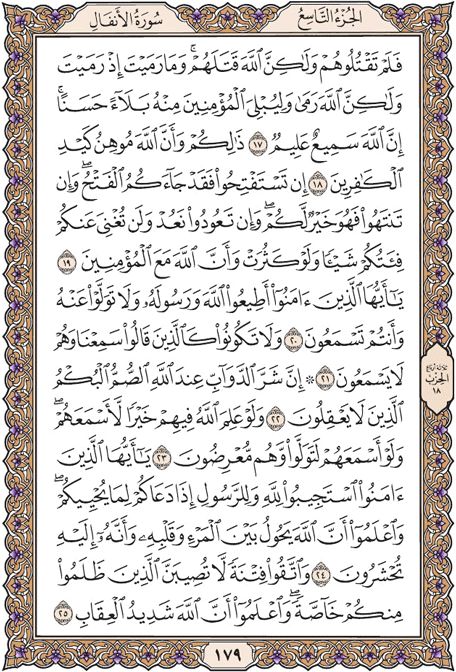 الجزء التاسع
سورة الأنفال
فَلَمْ تَقْتُلُوهُمْ وَلَٰكِنَّ ٱللَّهَ قَتَلَهُمْ ۚ وَمَا رَمَيْتَ إِذْ رَمَيْتَ
وَلَٰكِنَّ ٱللَّهَ رَمَىٰ وَلِيُبْلِىَ ٱلْمُؤْمِنِينَ مِنْهُ بَلَآءً حَسَنًا ۚ
إِنَّ ٱللَّهَ سَمِيعٌ عَلِيمٌ ١٧ ذَٰلِكُمْ وَأَنَّ ٱللَّهَ مُوهِنُ كَيْدِ
ٱلْكَٰفِرِينَ ١٨ إِن تَسْتَفْتِحُوا۟ فَقَدْ جَآءَكُمُ ٱلْفَتْحُ ۖ وَإِن
تَنتَهُوا۟ فَهُوَ خَيْرٌ لَّكُمْ ۖ وَإِن تَعُودُوا۟ نَعُدْ وَلَن تُغْنِىَ عَنكُمْ
فِئَتُكُمْ شَيْـًٔا وَلَوْ كَثُرَتْ وَأَنَّ ٱللَّهَ مَعَ ٱلْمُؤْمِنِينَ ١٩
يَٰٓأَيُّهَا ٱلَّذِينَ ءَامَنُوٓا۟ أَطِيعُوا۟ ٱللَّهَ وَرَسُولَهُۥ وَلَا تَوَلَّوْا۟ عَنْهُ
وَأَنتُمْ تَسْمَعُونَ ٢٠ وَلَا تَكُونُوا۟ كَٱلَّذِينَ قَالُوا۟ سَمِعْنَا وَهُمْ
لَا يَسْمَعُونَ ٢١ ۞ إِنَّ شَرَّ ٱلدَّوَآبِّ عِندَ ٱللَّهِ ٱلصُّمُّ ٱلْبُكْمُ
ٱلَّذِينَ لَا يَعْقِلُونَ ٢٢ وَلَوْ عَلِمَ ٱللَّهُ فِيهِمْ خَيْرًا لَّأَسْمَعَهُمْ ۖ
وَلَوْ أَسْمَعَهُمْ لَتَوَلَّوا۟ وَّهُم مُّعْرِضُونَ ٢٣ يَٰٓأَيُّهَا ٱلَّذِينَ
ءَامَنُوا۟ ٱسْتَجِيبُوا۟ لِلَّهِ وَلِلرَّسُولِ إِذَا دَعَاكُمْ لِمَا يُحْيِيكُمْ ۖ
وَٱعْلَمُوٓا۟ أَنَّ ٱللَّهَ يَحُولُ بَيْنَ ٱلْمَرْءِ وَقَلْبِهِۦ وَأَنَّهُۥٓ إِلَيْهِ
تُحْشَرُونَ ٢٤ وَٱتَّقُوا۟ فِتْنَةً لَّا تُصِيبَنَّ ٱلَّذِينَ ظَلَمُوا۟
مِنكُمْ خَآصَّةً ۖ وَٱعْلَمُوٓا۟ أَنَّ ٱللَّهَ شَدِيدُ ٱلْعِقَابِ ٢٥
ثلاثة أرباع
الحزب
١٨
١٧٩